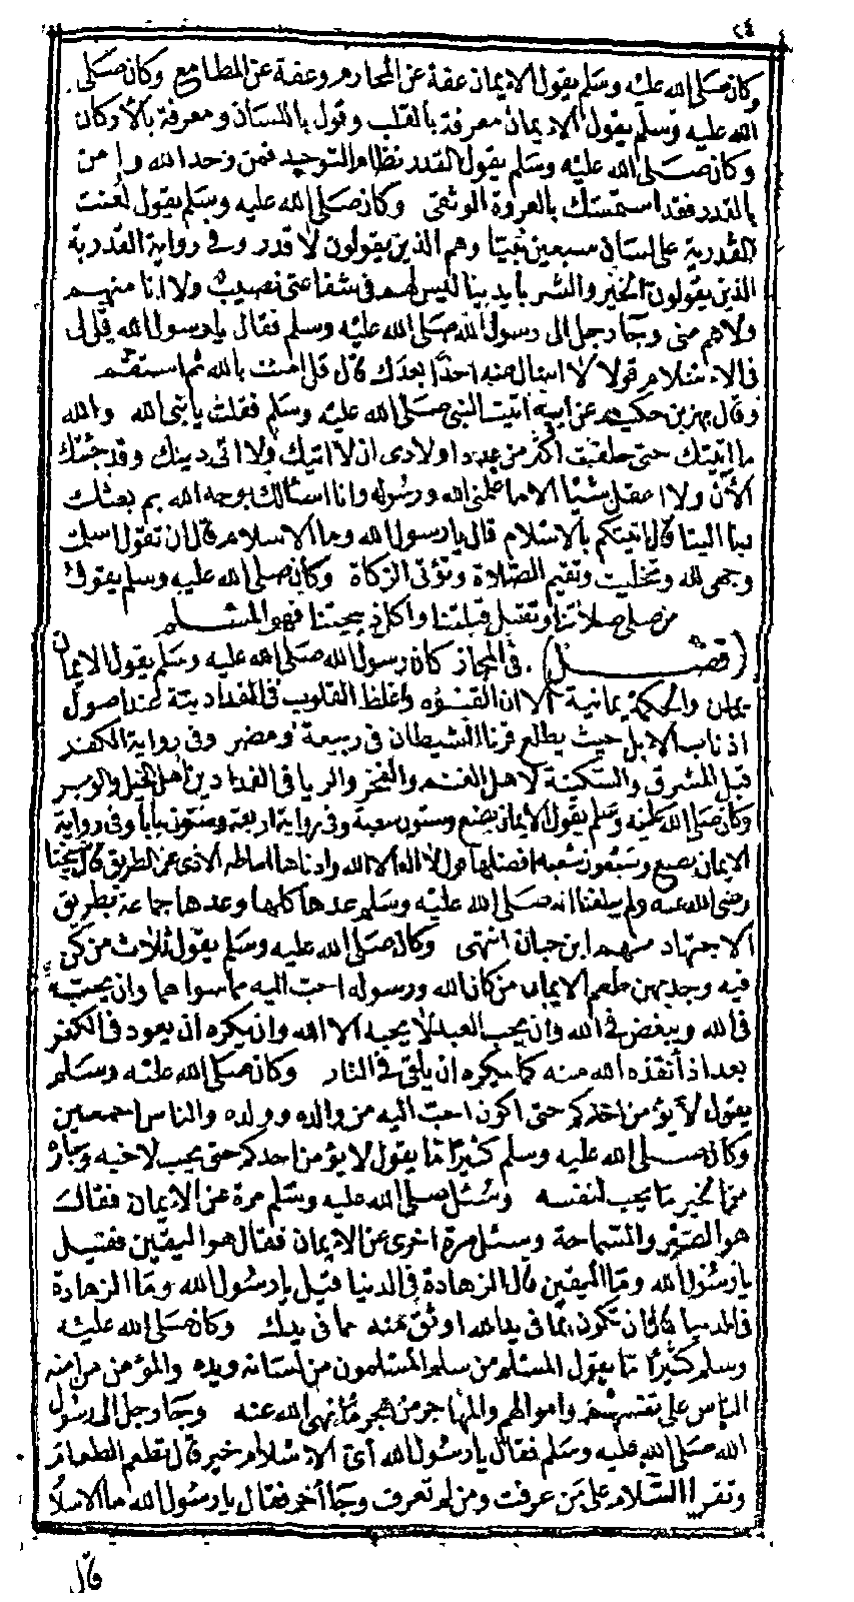 ٢٤
وكان صلى الله عليه وسلم يقول الايمان عفة عن المحارم وعفة عن المطامع وكان صلى
الله عليه وسلم يقول الايمان معرفة بالقلب وقول باللسان ومعرفة بالأركان
وكان صلى الله عليه وسلم يقول القدر نظام التوحيد فمن وحد الله وامن
بالقدر فقد استمسك بالعروة الوثقى وكان صلى الله عليه وسلم يقول لعنت
القدرية على لسان سبعين نبيا وهم الذين يقولون لا قدر وفي رواية القدرية
الذين يقولون الخير والشر بايدينا ليس لهم في شفاعتي نصيب ولا انا منهم
ولاهم مني وجا رجل الى رسول الله صلى الله عليه وسلم فقال يا رسول الله قل لي
في الاسلام قولا لا اسال عنه احدا بعدك قال قل امنت بالله ثم استقم
وقال بهز بن حكيم عن ابيه اتيت النبي صلى الله عليه وسلم فقلت يا نبي الله والله
ما اتيتك حتى حلفت اكثر من عدد اولادى ان لا اتيك ولا اتى دينك وقد جئتك
الآن ولا اعقل شيا الا ما علمني الله ورسوله وانا اسالك بوجه الله بم بعثك
ربنا الينا قال اتيتكم بالاسلام قال يا رسول الله وما الاسلام قال ان تقول اسلمت
وجهى لله وتخليت وتقيم الصلاة وتؤتى الزكاة وكان صلى الله عليه وسلم يقول
من صلى صلاتنا وتقبل قبلتنا واكل ذبيحتنا فهو المسلم
(فصل) في المجاز كان رسول الله صلى الله عليه وسلم يقول الايمان
يمان والحكمة يمانية الا ان القسوه واغلظ القلوب في الفدادين عند اصول
اذناب الابل حيث يطلع قرنا الشيطان في ربيعة ومضر وفي رواية الكفر
قبل المشرق والسكينة لاهل الغنم والفخر والريا في الفدادين اهل الخيل والوبر
وكان صلى الله عليه وسلم يقول الايمان بضع وستون شعبة وفي رواية اربعة وستون بابا وفي رواية
الايمان بضع وسبعون شعبه افضلها قول لا اله الا الله وادناها اماطه الاذى عن الطريق قال شيخنا
رضى الله عنه ولم يبلغنا انه صلى الله عليه وسلم عدها كلها وعدها جماعة بطريق
الاجتهاد منهم ابن حبان انتهى وكان صلى الله عليه وسلم يقول ثلاث من كن
فيه وجد بهن طعم الايمان من كان الله ورسوله احب اليه مما سواهما وان يحب
في الله ويبغض في الله وان يحب العبد لا يحبه الا الله وان يكره ان يعود في الكفر
بعد اذ أنقذه الله منه كما يكره ان يلقى في النار وكان صلى الله عليه وسلم
يقول لا يؤمن احدكم حتى اكون احب اليه من والده وولده والناس اجمعين
وكان صلى الله عليه وسلم كثيرا ما يقول لا يؤمن احدكم حتى يحب لاخيه وجاره
من الخير ما يحب لنفسه وسئل صلى الله عليه وسلم مرة عن الايمان فقال
هو الصبر والسماحة وسئل مرة اخرى عن الايمان فقال هو اليقين فقيل
يا رسول الله وما اليقين قال الزهادة في الدنيا قيل يا رسول الله وما الزهادة
في الدنيا قال ان تكون بما في يد الله اوثق منه مما في يدك وكان صلى الله عليه
وسلم كثيرا ما يقول المسلم من سلم المسلمون من لسانه ويده والمؤمن من امنه
الناس على انفسهم واموالهم والمهاجر من هجر ما نهى الله عنه وجا رجل الى رسول
الله صلى الله عليه وسلم فقال يا رسول الله أي الاسلام خير قال تطعم الطعام
وتقرا السلام على من عرفت ومن لم تعرف وجا أخر فقال يا رسول الله ما الاسلام
قال